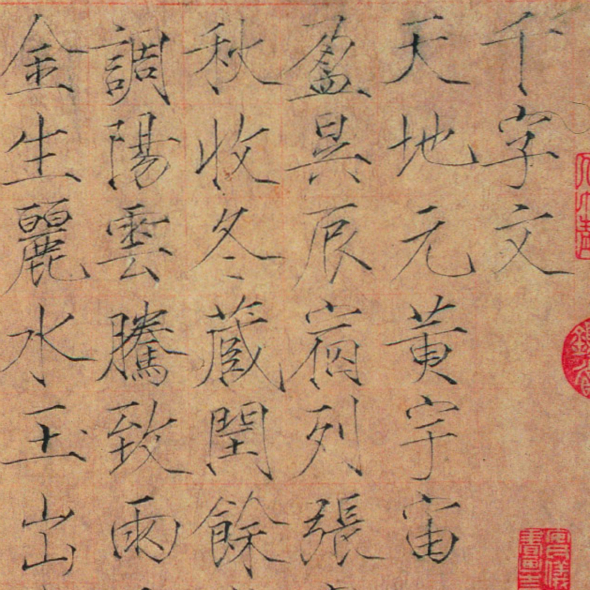 千字文
天地元黃宇宙
盈昃辰宿列張
秋收冬藏閏餘
調陽雲騰致雨
金生麗水玉出